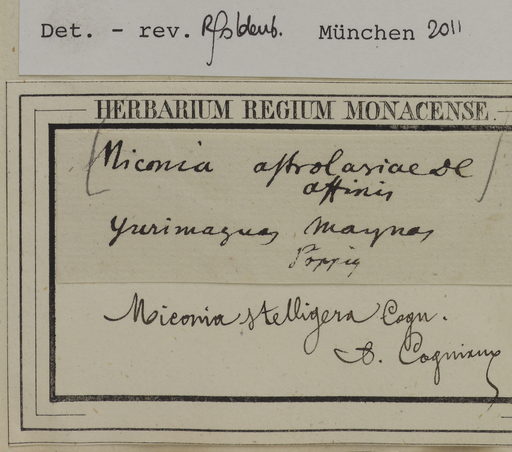 Det. - rev. München 2011
HERBARIUM REGIUM MONACENSE.
(Miconia DC)
affinis
Yurimaguas Maynas
Poppig
Miconia stelligera Cogn.
A. Cogniaux